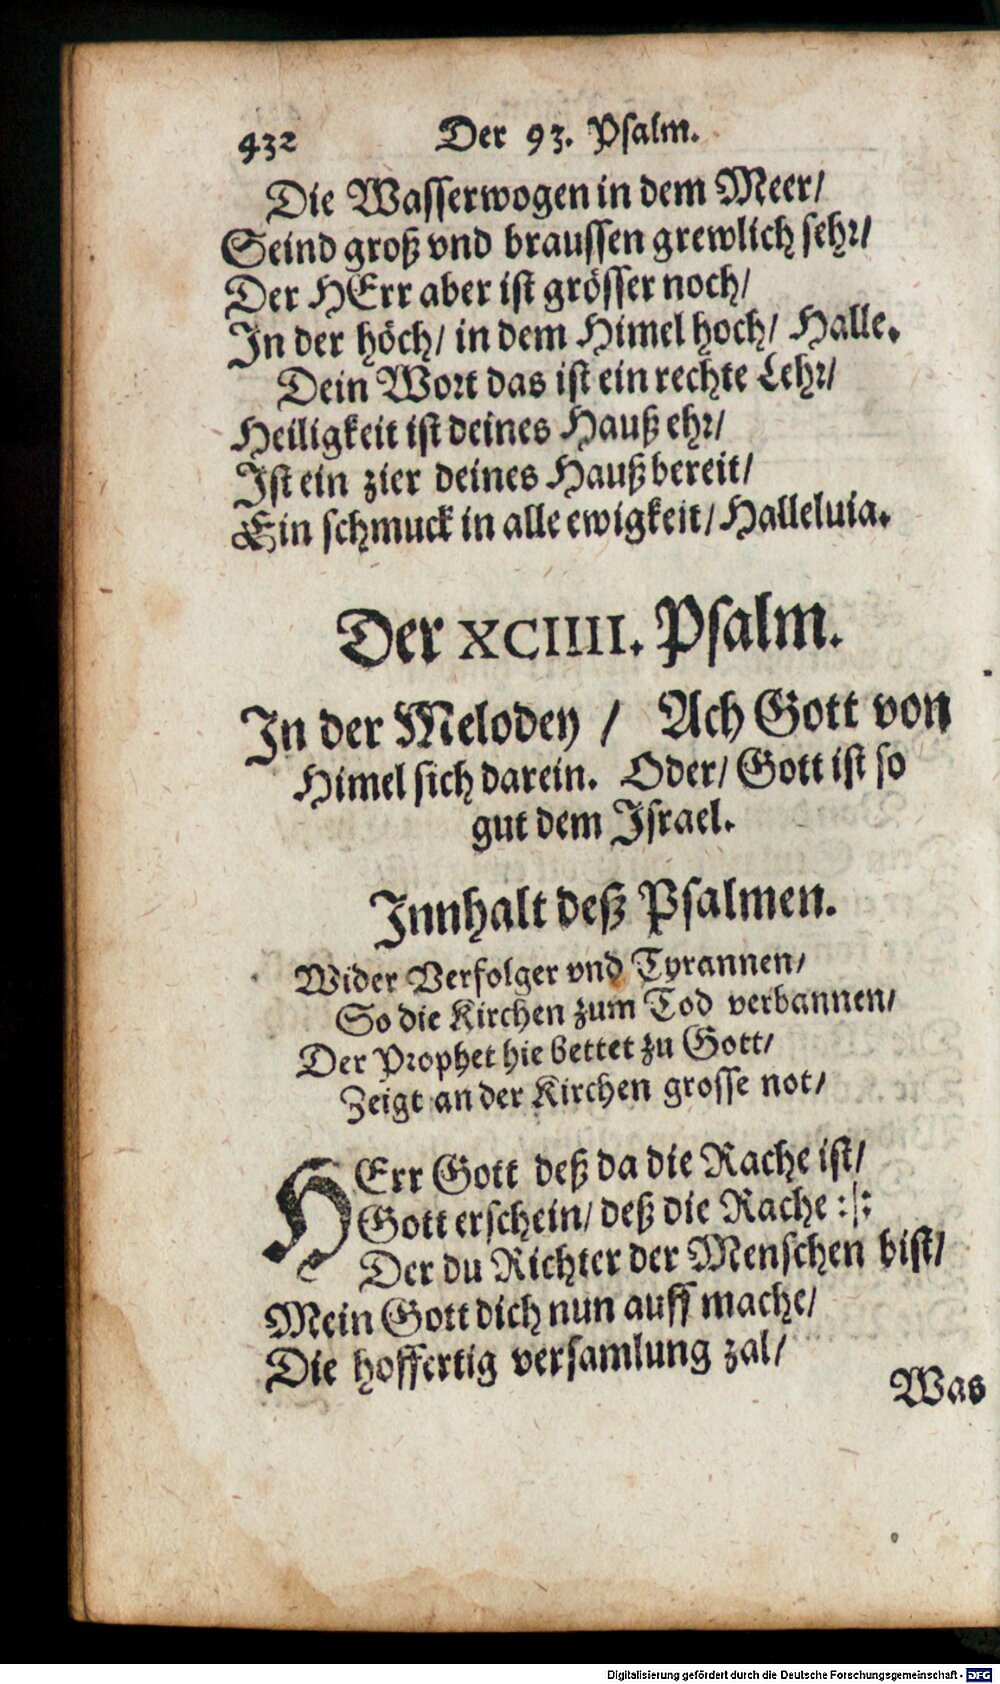 432 Der 93. Psalm.
Die Wasserwogen in dem Meer/
Seind groß vnd braussen grewlich sehr/
Der HErr aber ist grösser noch/
In der höch/ in dem Himel hoch/ Halle.
Dein Wort das ist ein rechte Lehr/
Heiligkeit ist deines Hauß ehr/
Ist ein zier deines Hauß bereit/
Ein schmuck in alle ewigkeit/ Halleluia.
Der XCIIII. Psalm.
In der Melodey / Ach Gott von
Himel sich darein. Oder/ Gott ist so
gut dem Israel.
Innhalt deß Psalmen.
Wider Verfolger vnd Tyrannen/
So die Kirchen zum Tod verbannen/
Der Prophet hie bettet zu Gott/
Zeigt an der Kirchen grosse not/
HErr Gott deß da die Rache ist/
Gott erschein/ deß die Rache :|:
Der du Richter der Menschen bist/
Mein Gott dich nun auff mache/
Die hoffertig versamlung zal/
Was
Digitalisierung gefördert durch die Deutsche Forschungsgemeinschaft - DFG